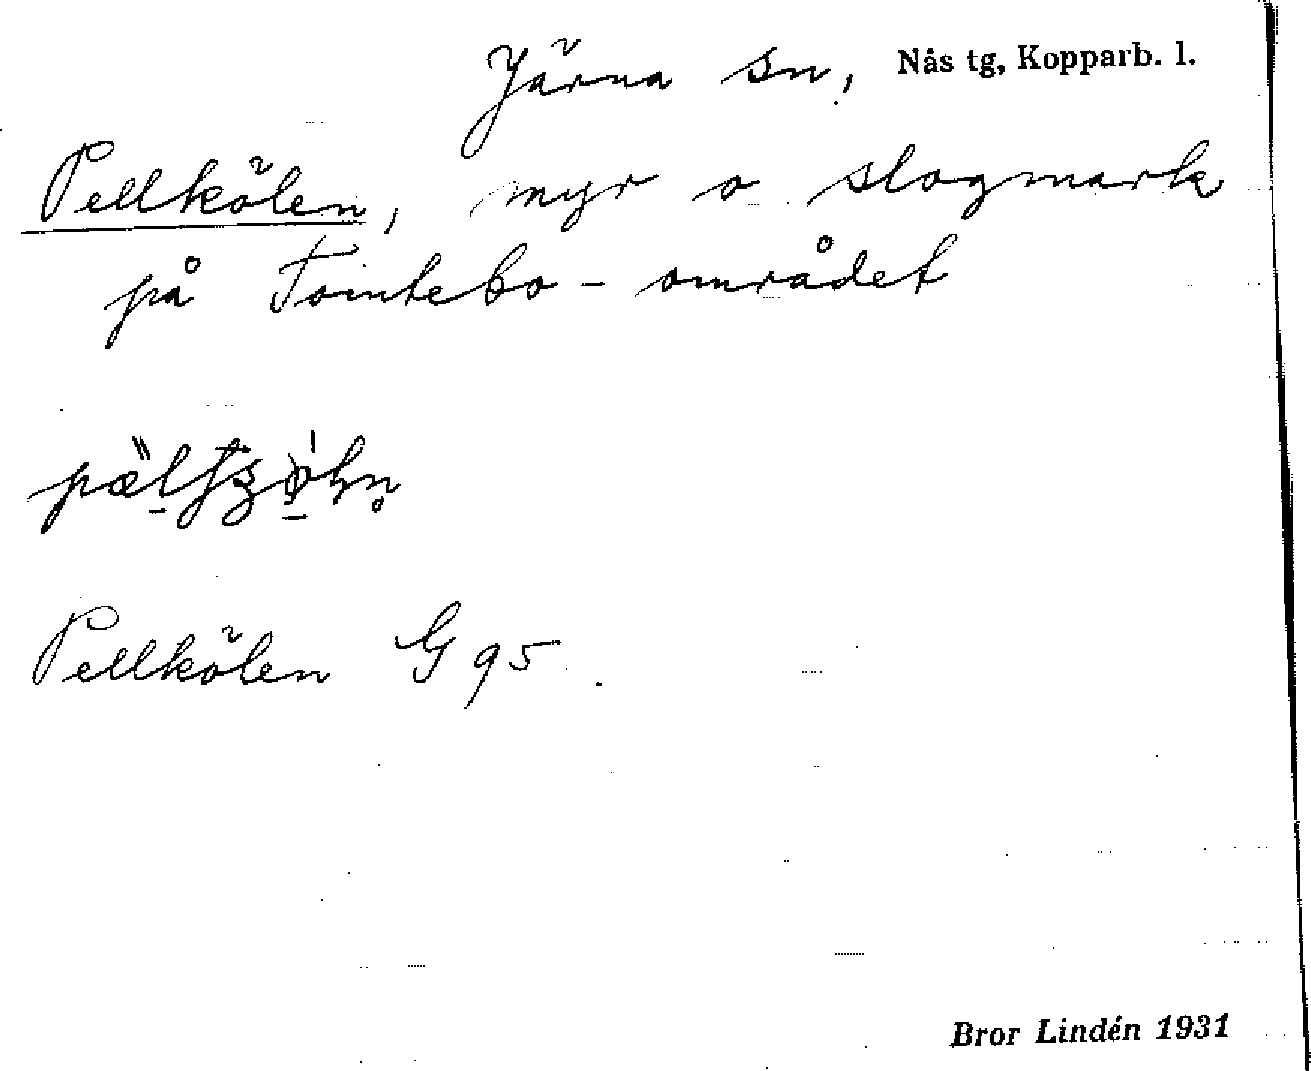 Järna sn, Nås tg, Kopparb. l.
Pellkölen, myr o slogmark
på Tomtebo-området
Pellkölen G 95
Bror Lindén 1931